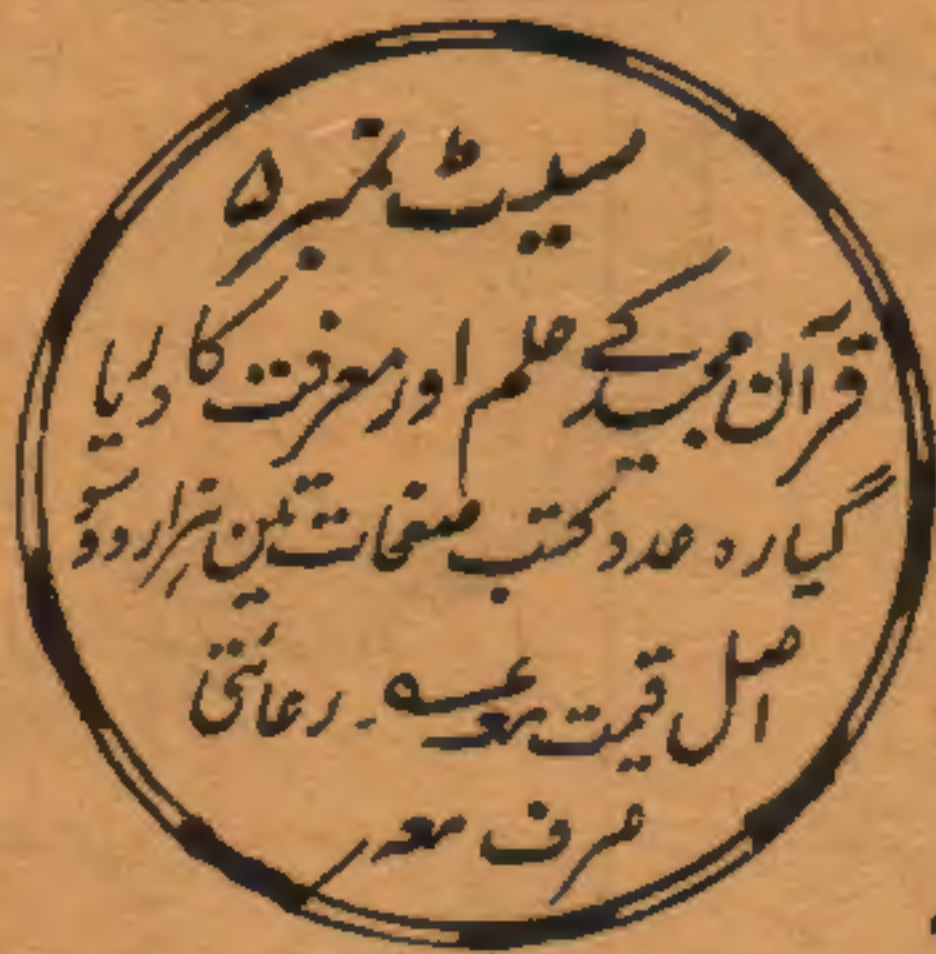 سیٹ نمبر ۵
قرآن مجید کے علم اور معرفت کا دریا
گیارہ عدد کتب صفحات تین ہزار دو سو
اصل قیمت رعائتی
صرف